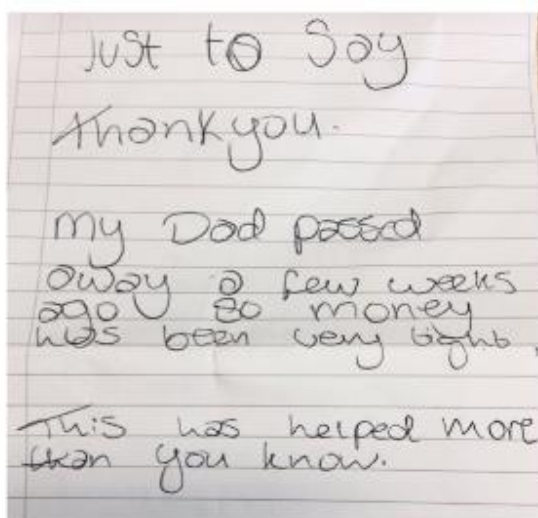 Just to Say
Thankyou.
My Dad passed
away a few weeks
ago so money
has been very tight.
This has helped more
than you know.